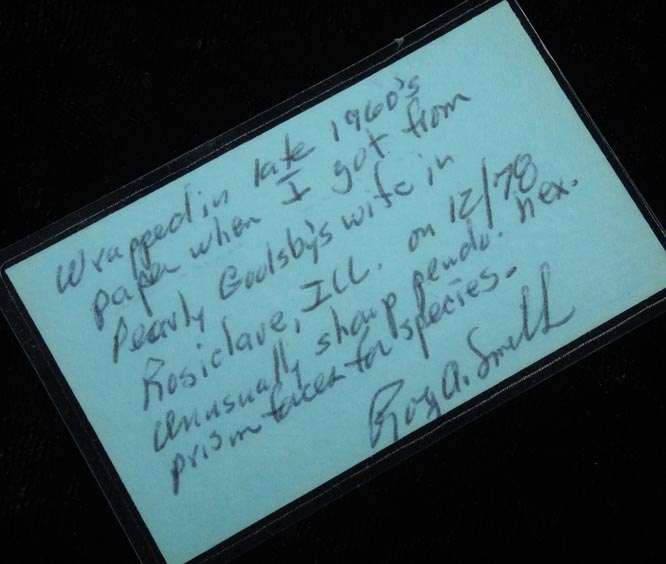 Wrapped in late 1960's
paper when I got from
Pearly Godsby's wife in
Rosiclare, Ill. on 12/78
Unusually sharp pendo. hex.
prism faces for species.
Roy A. Smith